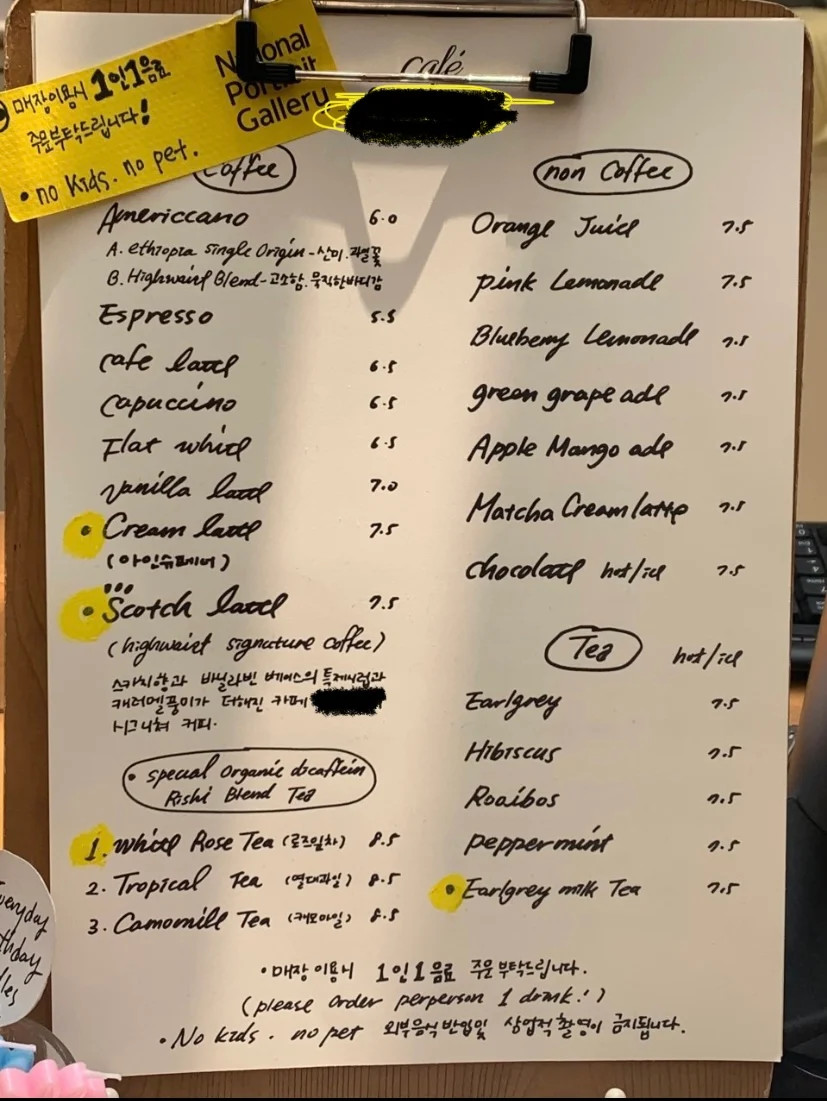 매장이용시 1인1음료
주문부탁드립니다!
• no kids. no pet.
National
Portrait
Gallery
café
Coffee
Americcano 6.0
A. ethiopia single Origin - 산미.과일꽃
B. Highwaist Blend - 고소함. 묵직한바디감
Espresso 5.5
cafe latte 6.5
Capuccino 6.5
Flat white 6.5
Vanilla latte 7.0
• Cream latte 7.5
(아인슈페너)
• Scotch latte 7.5
(highwaist signature coffee)
스카치향과 바닐라빈 베이스의 특제시럽과
캐러멜풍미가 더해진 카페
시그니쳐 커피.
• special Organic dicaffein
Rishi Blend Tea
1. White Rose Tea (로즈잎차) 8.5
2. Tropical Tea (열대과일) 8.5
3. Camomill Tea (캐모마일) 8.5
non Coffee
Orange Juice 7.5
pink Lemonade 7.5
Blueberry Lemonade 7.5
green grape ade 7.5
Apple Mango ade 7.5
Matcha Cream latte 7.5
chocolate hot/ice 7.5
Tea hot/ice
Earlgrey 7.5
Hibiscus 7.5
Rooibos 7.5
peppermint 7.5
• Earlgrey milk Tea 7.5
• 매장이용시 1인1음료 주문부탁드립니다.
(please order perperson 1 drink!)
• No kids. no pet 외부음식 반입및 상업적촬영이 금지됩니다.